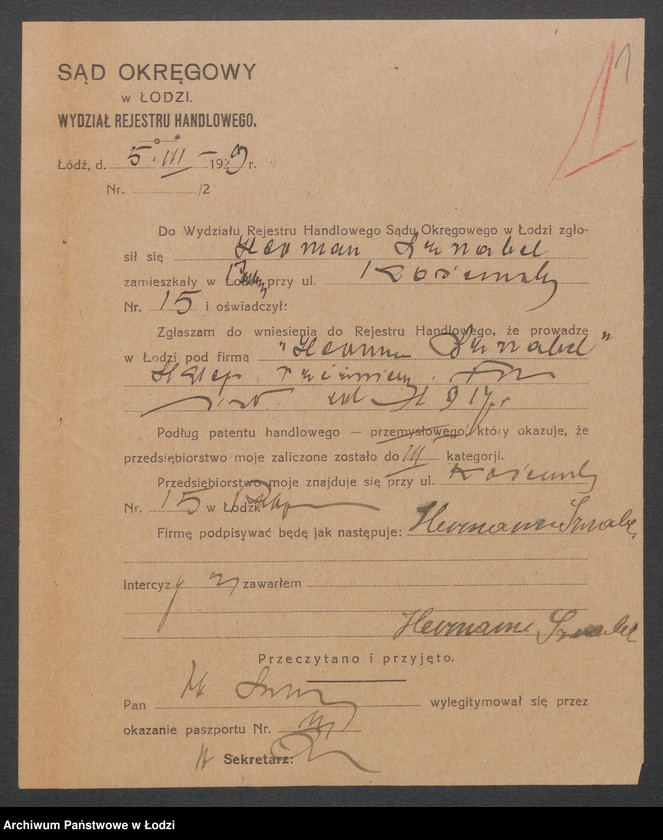 1
SĄD OKRĘGOWY
w ŁODZI.
WYDZIAŁ REJESTRU HANDLOWEGO.
Łódź, d. 5.III – 1929 r.
Nr. /2
Do Wydziału Rejestru Handlowego Sądu Okręgowego w Łodzi zgło-
sił się Herman Sznabel
zamieszkały w Łodzi przy ul. Kościelny
Nr. 15 i oświadczył:
Zgłaszam do wniesienia do Rejestru Handlowego, że prowadzę
w Łodzi pod firmą "Herman Sznabel"
Sklep
od 1917 r
Podług patentu handlowego — przemysłowego, który okazuje, że
przedsiębiorstwo moje zaliczone zostało do III kategorji.
Przedsiębiorstwo moje znajduje się przy ul. Kościelny
Nr. 15 w Łodzi.
Firmę podpisywać będę jak następuje: Hermann Sznabel
Intercyzy zawarłem
Hermann Sznabel
Przeczytano i przyjęto.
Pan wylegitymował się przez
okazanie paszportu Nr.
Sekretarz:
Archiwum Państwowe w Łodzi